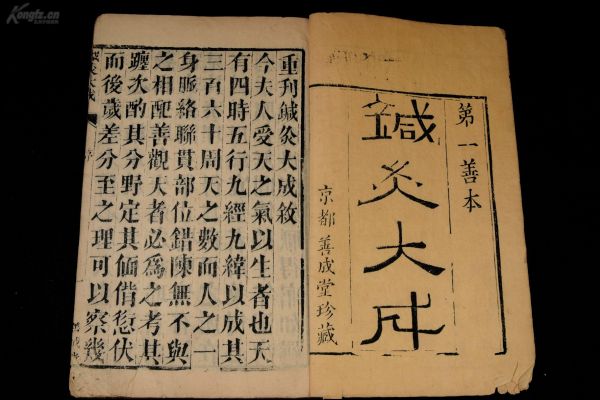 第一善本
鍼灸大成
京都善成堂珍藏
重刋鍼灸大成敘
今夫人受天之氣以生者也天
有四時五行九經九緯以成其
三百六十周天之數而人之一
身脈絡聯貫部位錯陳無不與
之相配善觀天者必為之考其
躔次酌其分野定其偭偝愆伏
而後歲差分至之理可以察幾
Kongfz.cn